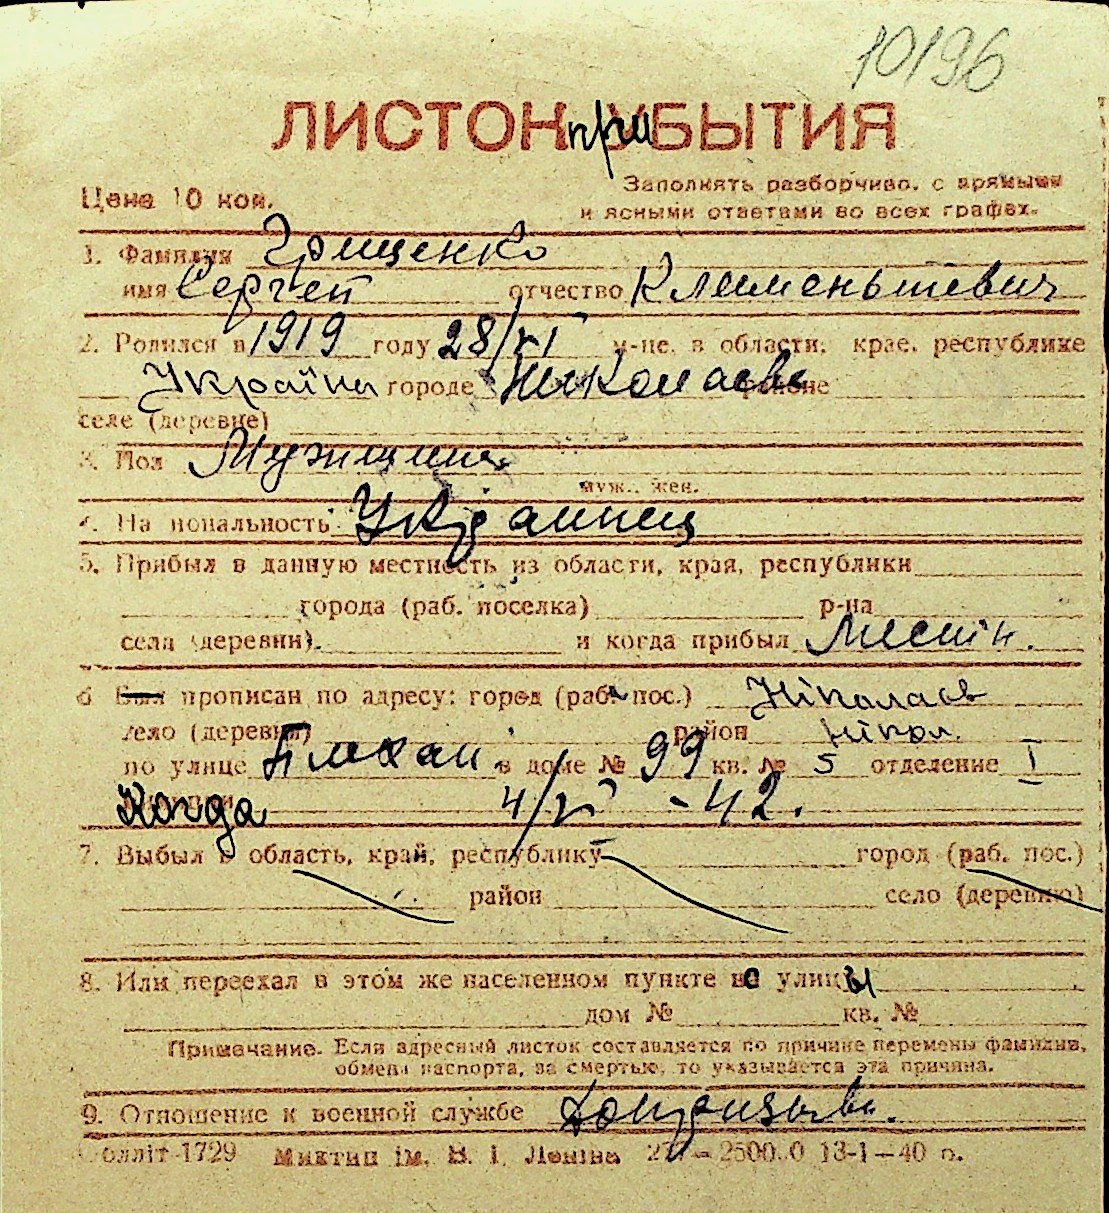 10196
ЛИСТОК при УБЫТИЯ
Цена 10 коп.
Заполнять разборчиво, с прямыми
и ясными ответами во всех графах.
1. Фамилия Грищенко
имя Сергей отчество Клименьтевич
2. Родился в 1919 году 28/VI м-це, в области, крае, республике
Україна городе Николаевъ районе
селе (деревне)
3. Пол Мужщина
муж., жен.
4. Национальность Украинец
5. Прибыл в данную местность из области, края, республики
города (раб. поселка) р-на
села (деревни) и когда прибыл Местн.
6 Был прописан по адресу: город (раб. пос.) Ніколаєв
село (деревня) район Нікол.
по улице в доме № 99 кв. № 5 отделение I
Когда 4/V -42.
7. Выбыл в область, край, республику город (раб. пос.)
район село (деревню)
8. Или переехал в этом же населенном пункте со улицы
дом № кв. №
Примечание. Если адресный листок составляется по причине перемены фамилии,
обмена паспорта, за смертью, то указывается эта причина.
9. Отношение к военной службе
Облліт 1729 Миктип ім. В. І. Леніна 13-1—40 р.